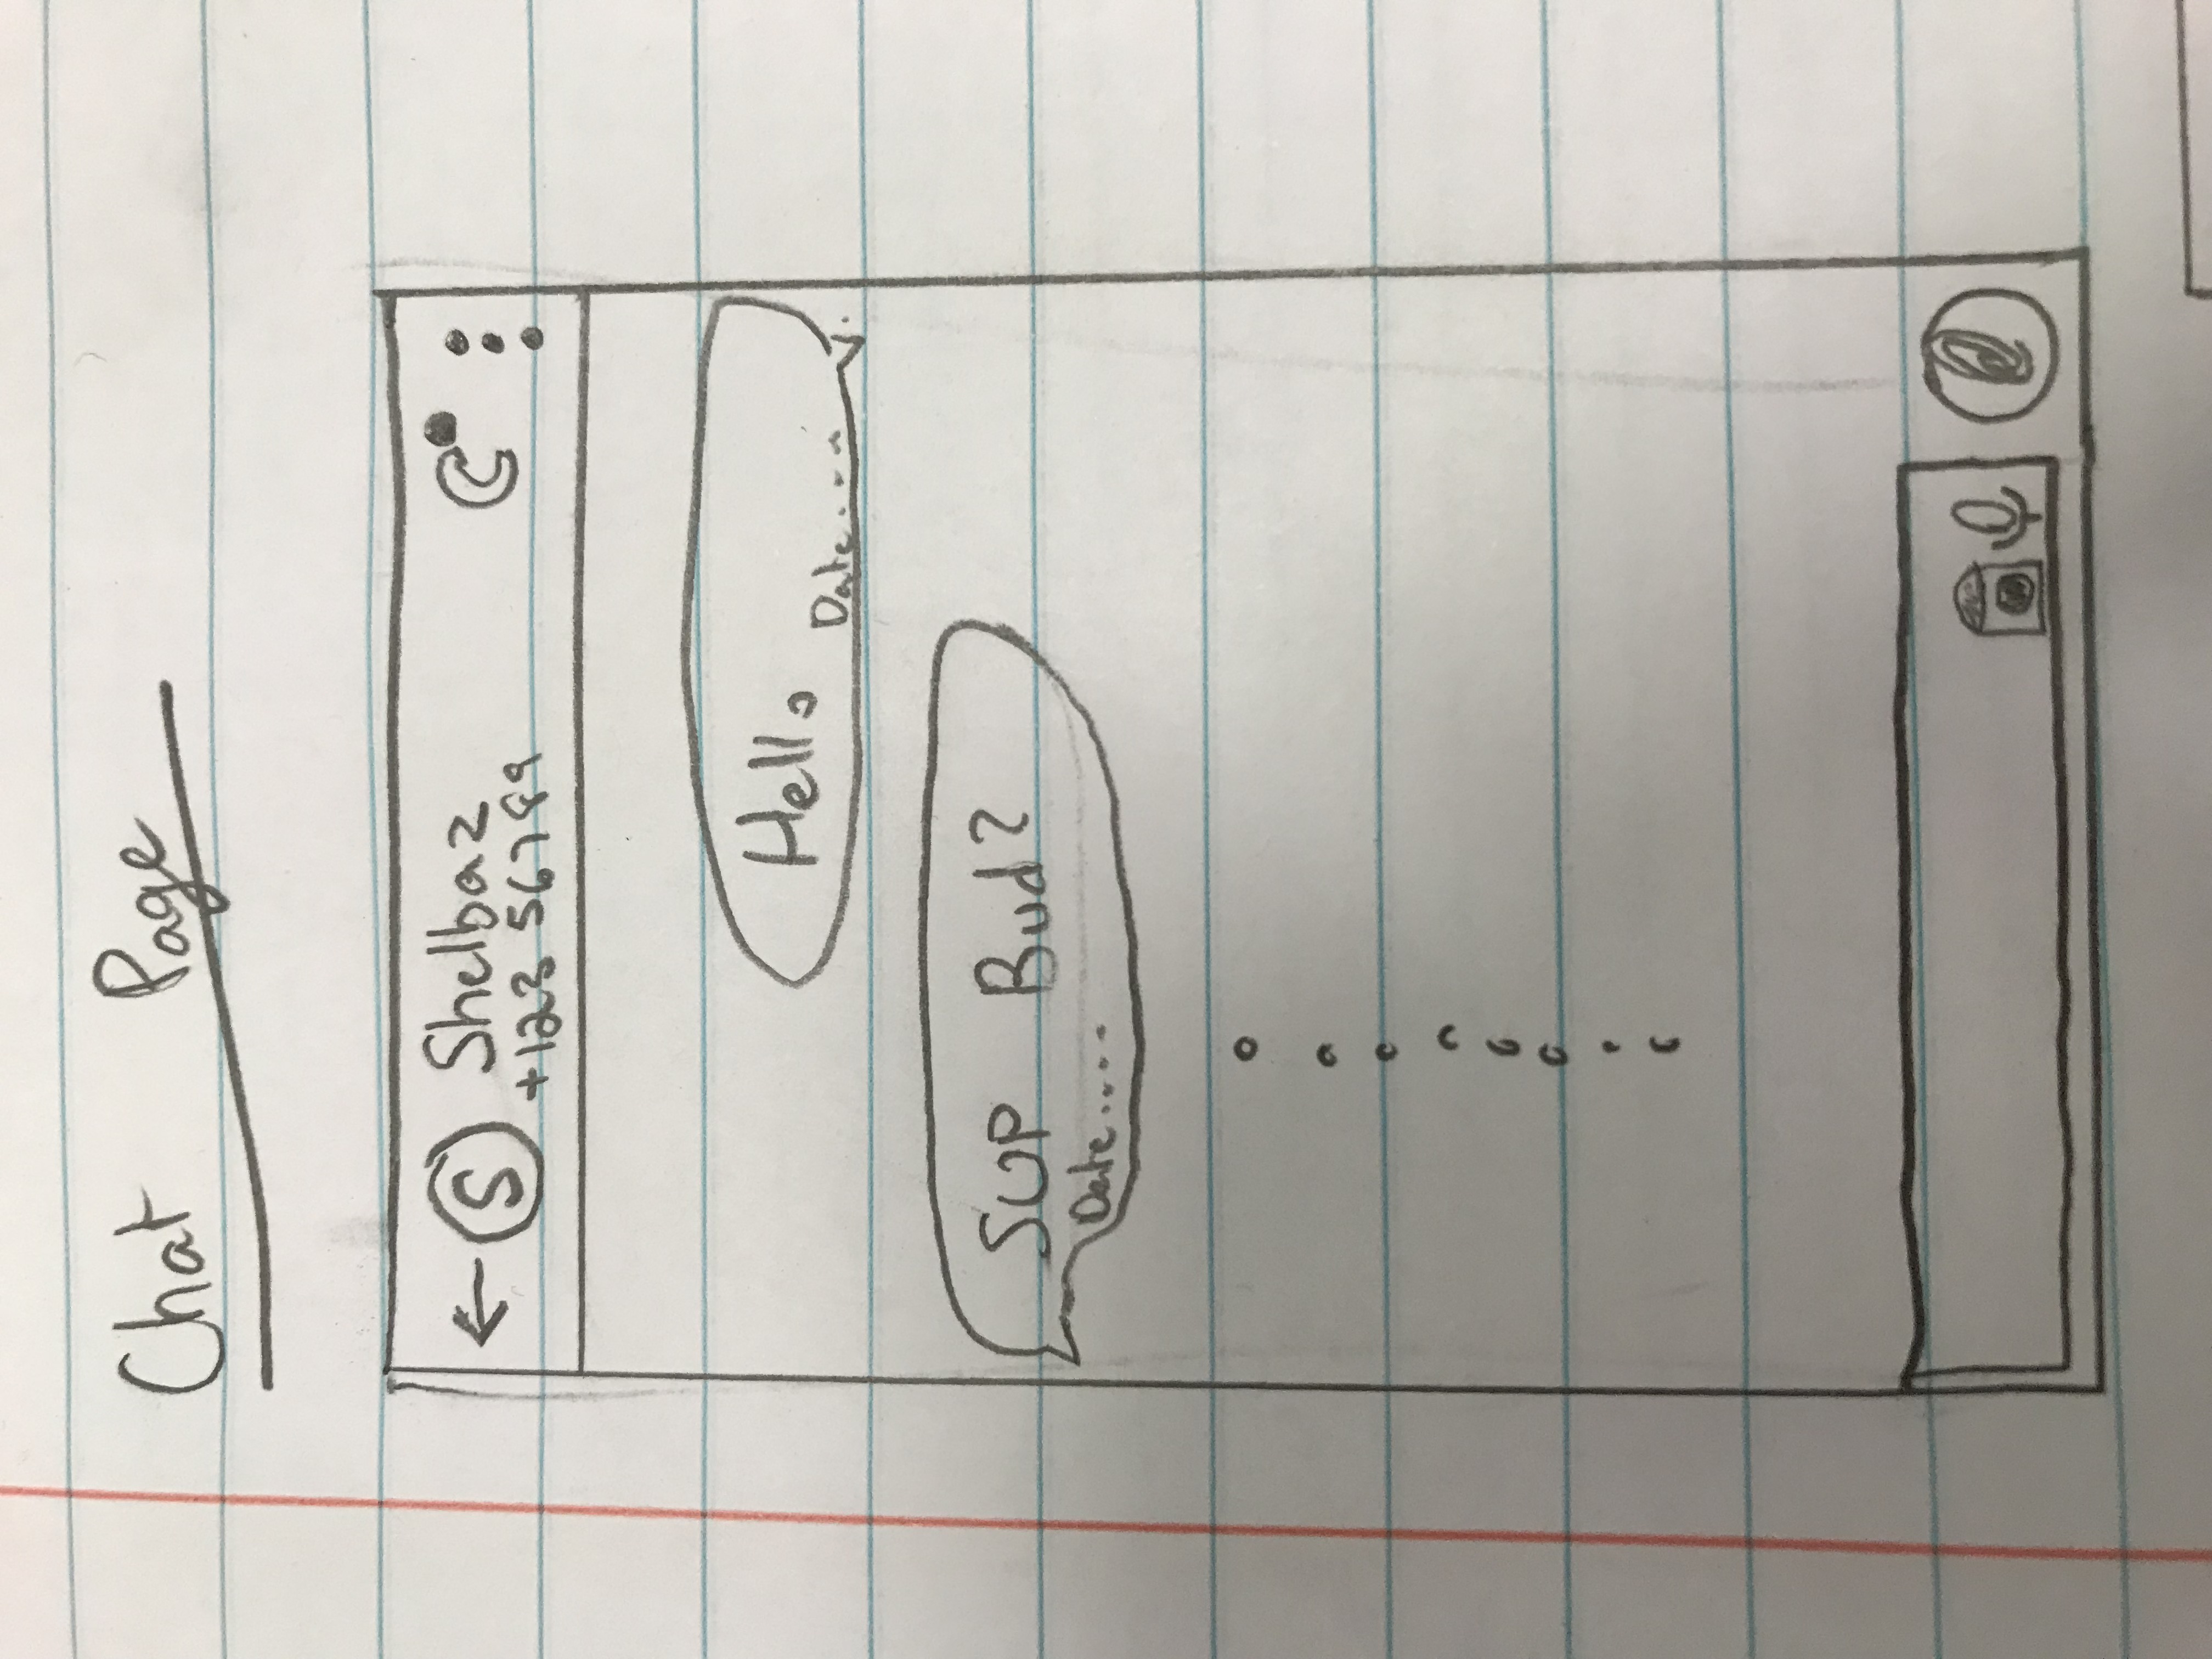 Chat Page
S Shelbaz
+123 56789
Hello
Date....
SUP Bud?
Date....